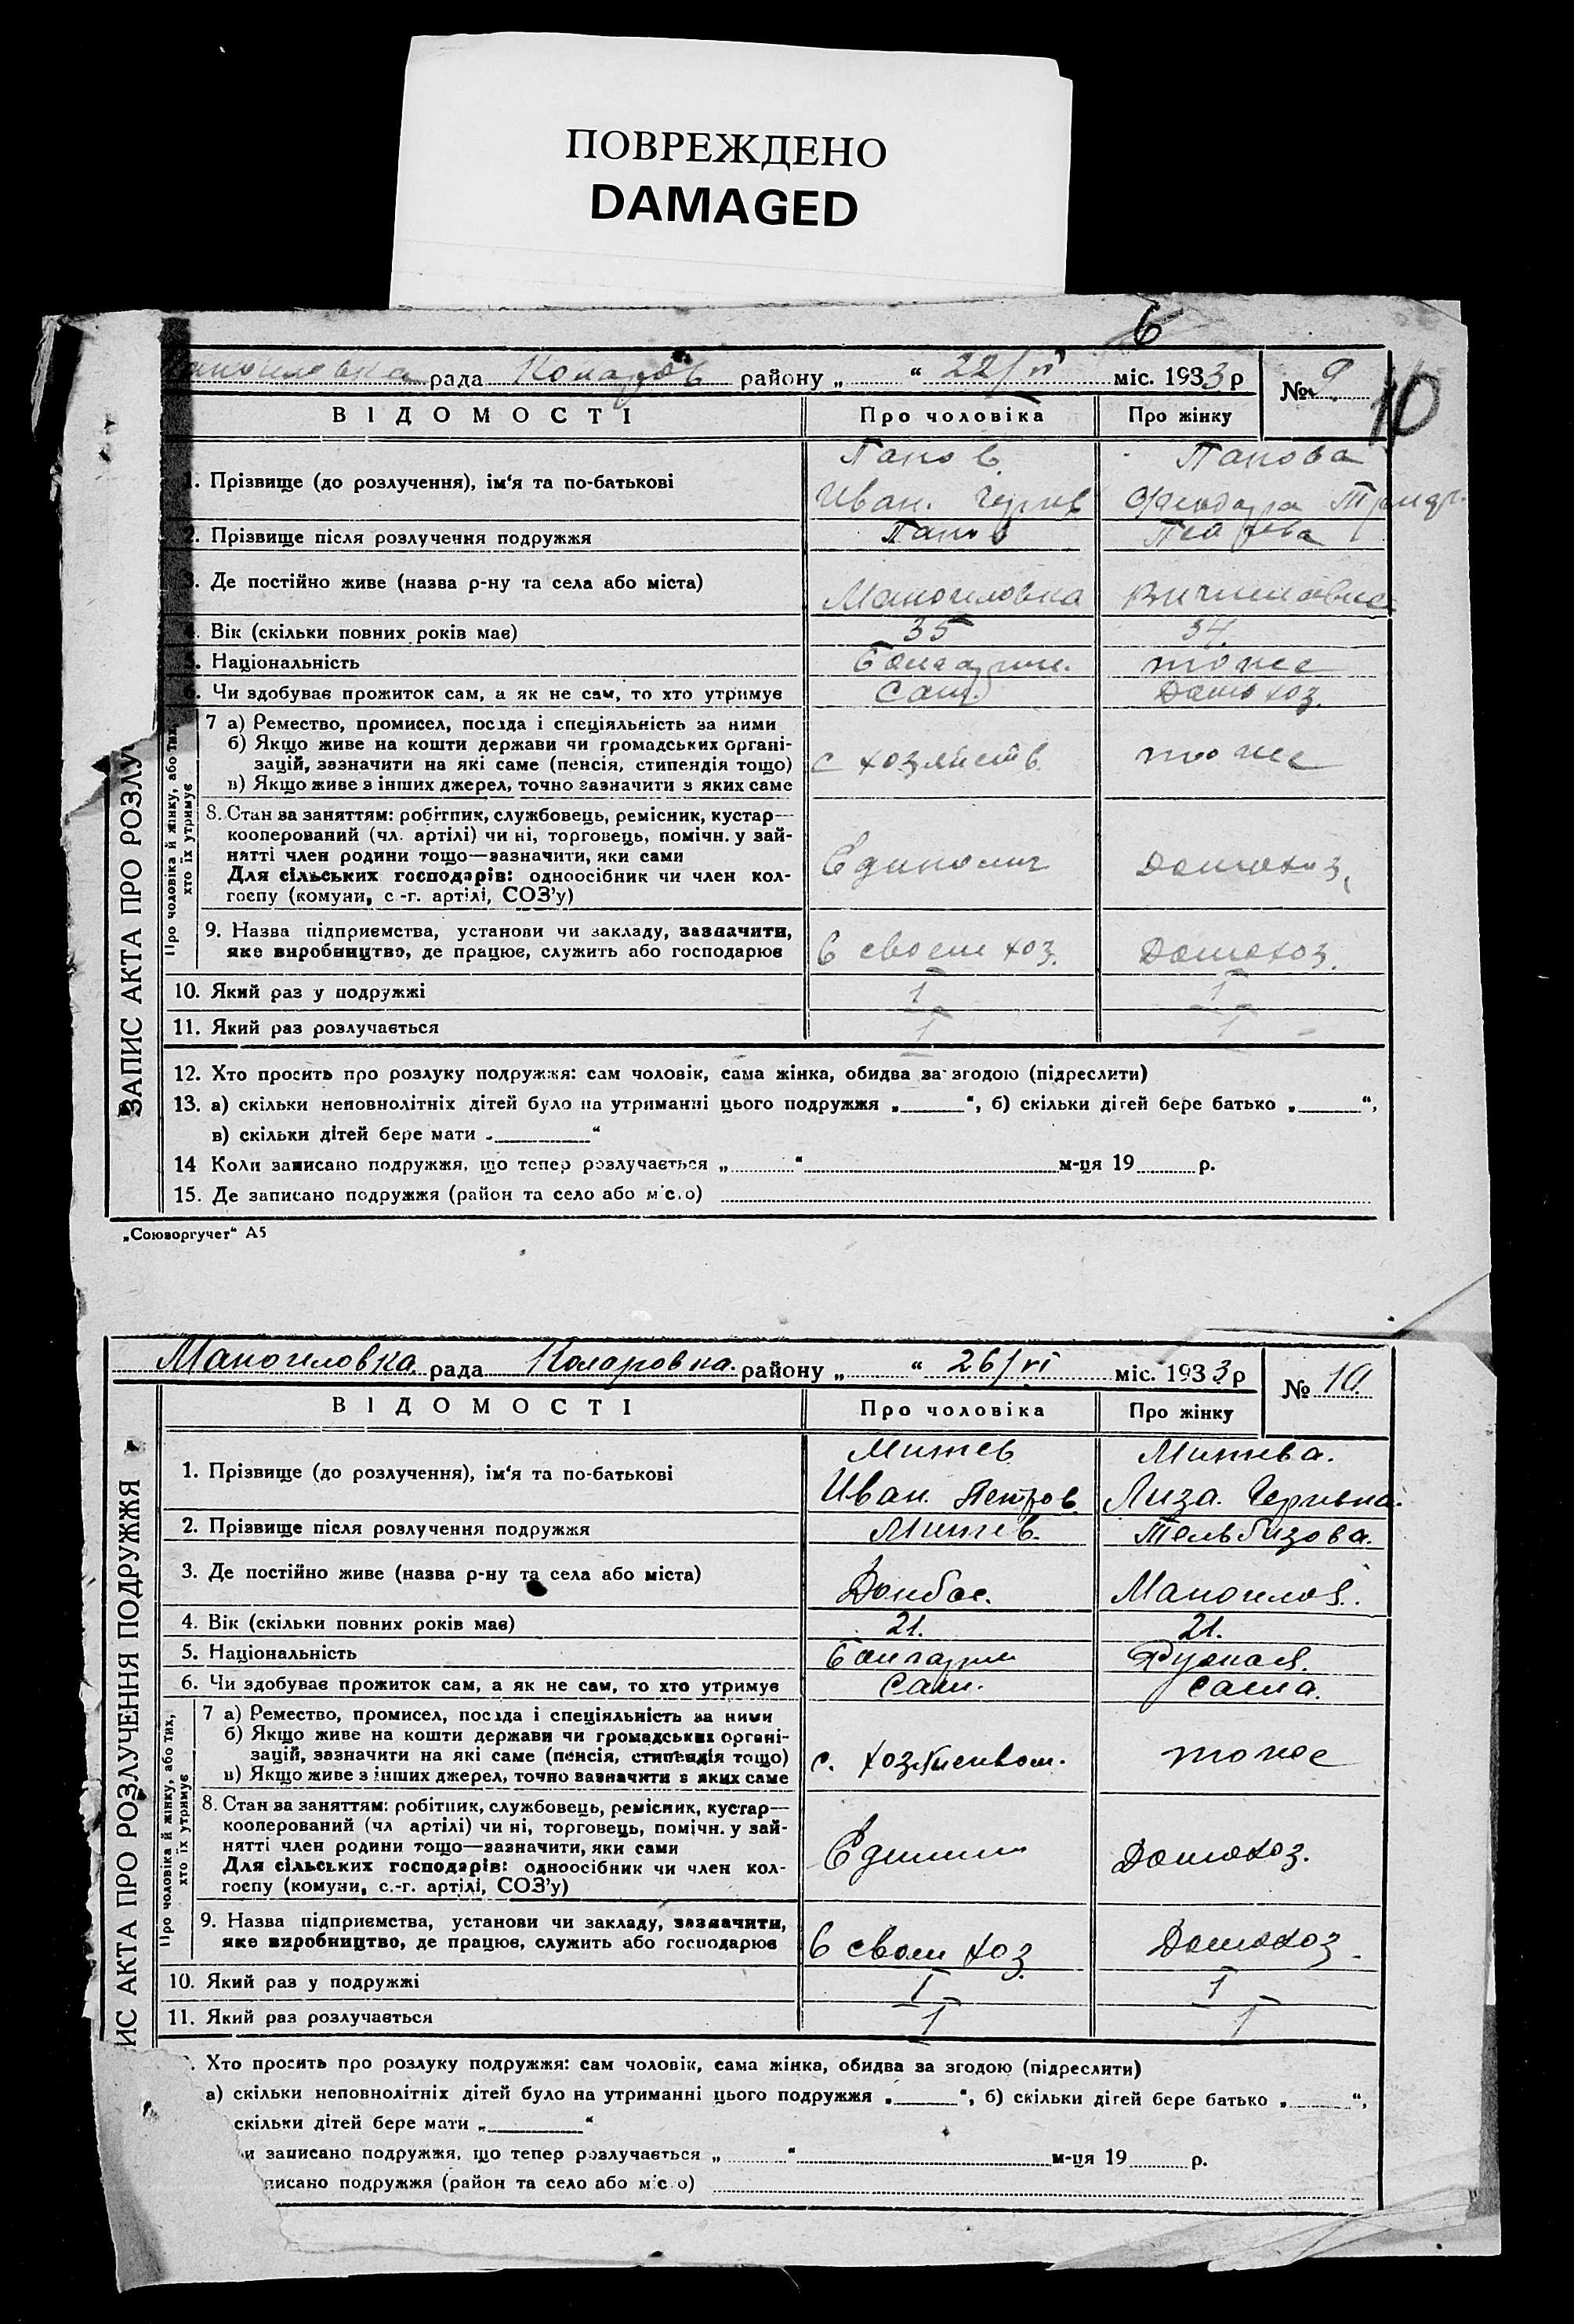 ПОВРЕЖДЕНО
DAMAGED
6
рада Коларов району „ “ 22/VI міс. 1933 р
№ 9
10
ВІДОМОСТІ
Про чоловіка
Про жінку
1. Прізвище (до розлучення), ім‘я та по-батькові
Панов
Иван.
Панова
2. Прізвище після розлучення подружжя
Панов
3. Де постійно живе (назва р-ну та села або міста)
Маногиловка
4. Вік (скільки повних років має)
35
34.
5. Національність
Болгарин.
тоже
6. Чи здобуває прожиток сам, а як не сам, то хто утримує
Сам.
Домохоз.
7 а) Ремество, промисел, посада і спеціяльність за ними
б) Якщо живе на кошти держави чи громадських органі-
зацій, зазначити на які саме (пенсія, стипендія тощо)
в) Якщо живе з інших джерел, точно зазначити з яких саме
с хозяйств
тоже
8. Стан за заняттям: робітник, службовець, ремісник, кустар—
кооперований (чл. артілі) чи ні, торговець, помічн. у зай-
нятті член родини тощо—зазначити, яки сами
Для сільських господарів: одноосібник чи член кол-
госпу (комуни, с.-г. артілі, СОЗ’у)
Единолич
Домохоз,
9. Назва підприємства, установи чи закладу, зазначити,
яке виробництво, де працює, служить або господарює
в своем хоз.
Домохоз.
Про чоловіка й жінку, або тих,
хто їх утримує
10. Який раз у подружжі
1
1
11. Який раз розлучається
1
1
ЗАПИС АКТА ПРО РОЗЛУ
12. Хто просить про розлуку подружжя: сам чоловік, сама жінка, обидва за згодою (підреслити)
13. а) скільки неповнолітніх дітей було на утриманні цього подружжя „ “, б) скільки дітей бере батько „ “,
в) скільки дітей бере мати „ “
14 Коли записано подружжя, що тепер розлучається „ “ м-ця 19 р.
15. Де записано подружжя (район та село або місто)
„Союзоргучет“ А5
Маногиловка рада Коларовка. району „ “ 26/VI міс. 1933 р
№ 10
ВІДОМОСТІ
Про чоловіка
Про жінку
1. Прізвище (до розлучення), ім‘я та по-батькові
Митев
Иван. Петров
Митева.
Лиза.
2. Прізвище після розлучення подружжя
Митев.
Тельбизова.
3. Де постійно живе (назва р-ну та села або міста)
Донбас.
Маногилов.
4. Вік (скільки повних років має)
21.
21.
5. Національність
болгарин
6. Чи здобуває прожиток сам, а як не сам, то хто утримує
Сам.
сама.
7 а) Ремество, промисел, посада і спеціяльність за ними
б) Якщо живе на кошти держави чи громадських органі-
зацій, зазначити на які саме (пенсія, стипендія тощо)
в) Якщо живе з інших джерел, точно зазначити з яких саме
с.
тоже
8. Стан за заняттям: робітник, службовець, ремісник, кустар—
кооперований (чл артілі) чи ні, торговець, помічн. у зай-
нятті член родини тощо—зазначити, яки сами
Для сільських господарів: одноосібник чи член кол-
госпу (комуни, с.-г. артілі, СОЗ’у)
Домохоз.
9. Назва підприємства, установи чи закладу, зазначити,
яке виробництво, де працює, служить або господарює
в своем хоз
Домохоз.
Про чоловіка й жінку, або тих,
хто їх утримує
10. Який раз у подружжі
1
1
11. Який раз розлучається
1
1
ИС АКТА ПРО РОЗЛУЧЕННЯ ПОДРУЖЖЯ
. Хто просить про розлуку подружжя: сам чоловік, сама жінка, обидва за згодою (підреслити)
а) скільки неповнолітніх дітей було на утриманні цього подружжя „ “, б) скільки дітей бере батько „ “,
скільки дітей бере мати „ “
и записано подружжя, що тепер розлучається „ “ м-ця 19 р.
писано подружжя (район та село або місто)